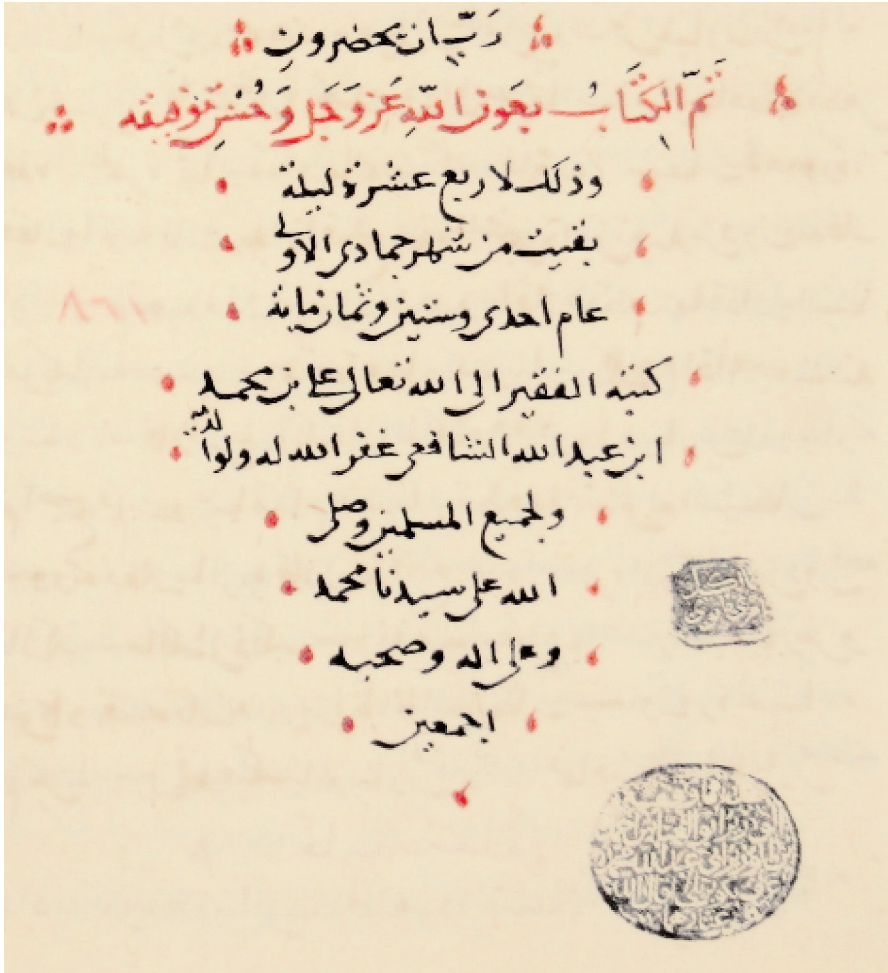 رَبِّ ان يحضرونِ
تَمَّ الكِتَابُ بعَونِ اللّهِ عَز وَجَل وَحُسْنِ توفيقه
وذلك لاربع عشرة ليلة
بقيت من شهر جمادى الاولى
عام احدى وستين وثمان ماية
٨٦١
كتبه الفقير الى الله تعالى على بن محمد
ابن عبد الله الشافعى غفر الله له ولوالديه
ولجميع المسلمين وصلى
الله على سيدنا محمد
وعلى اله وصحبه
اجمعين